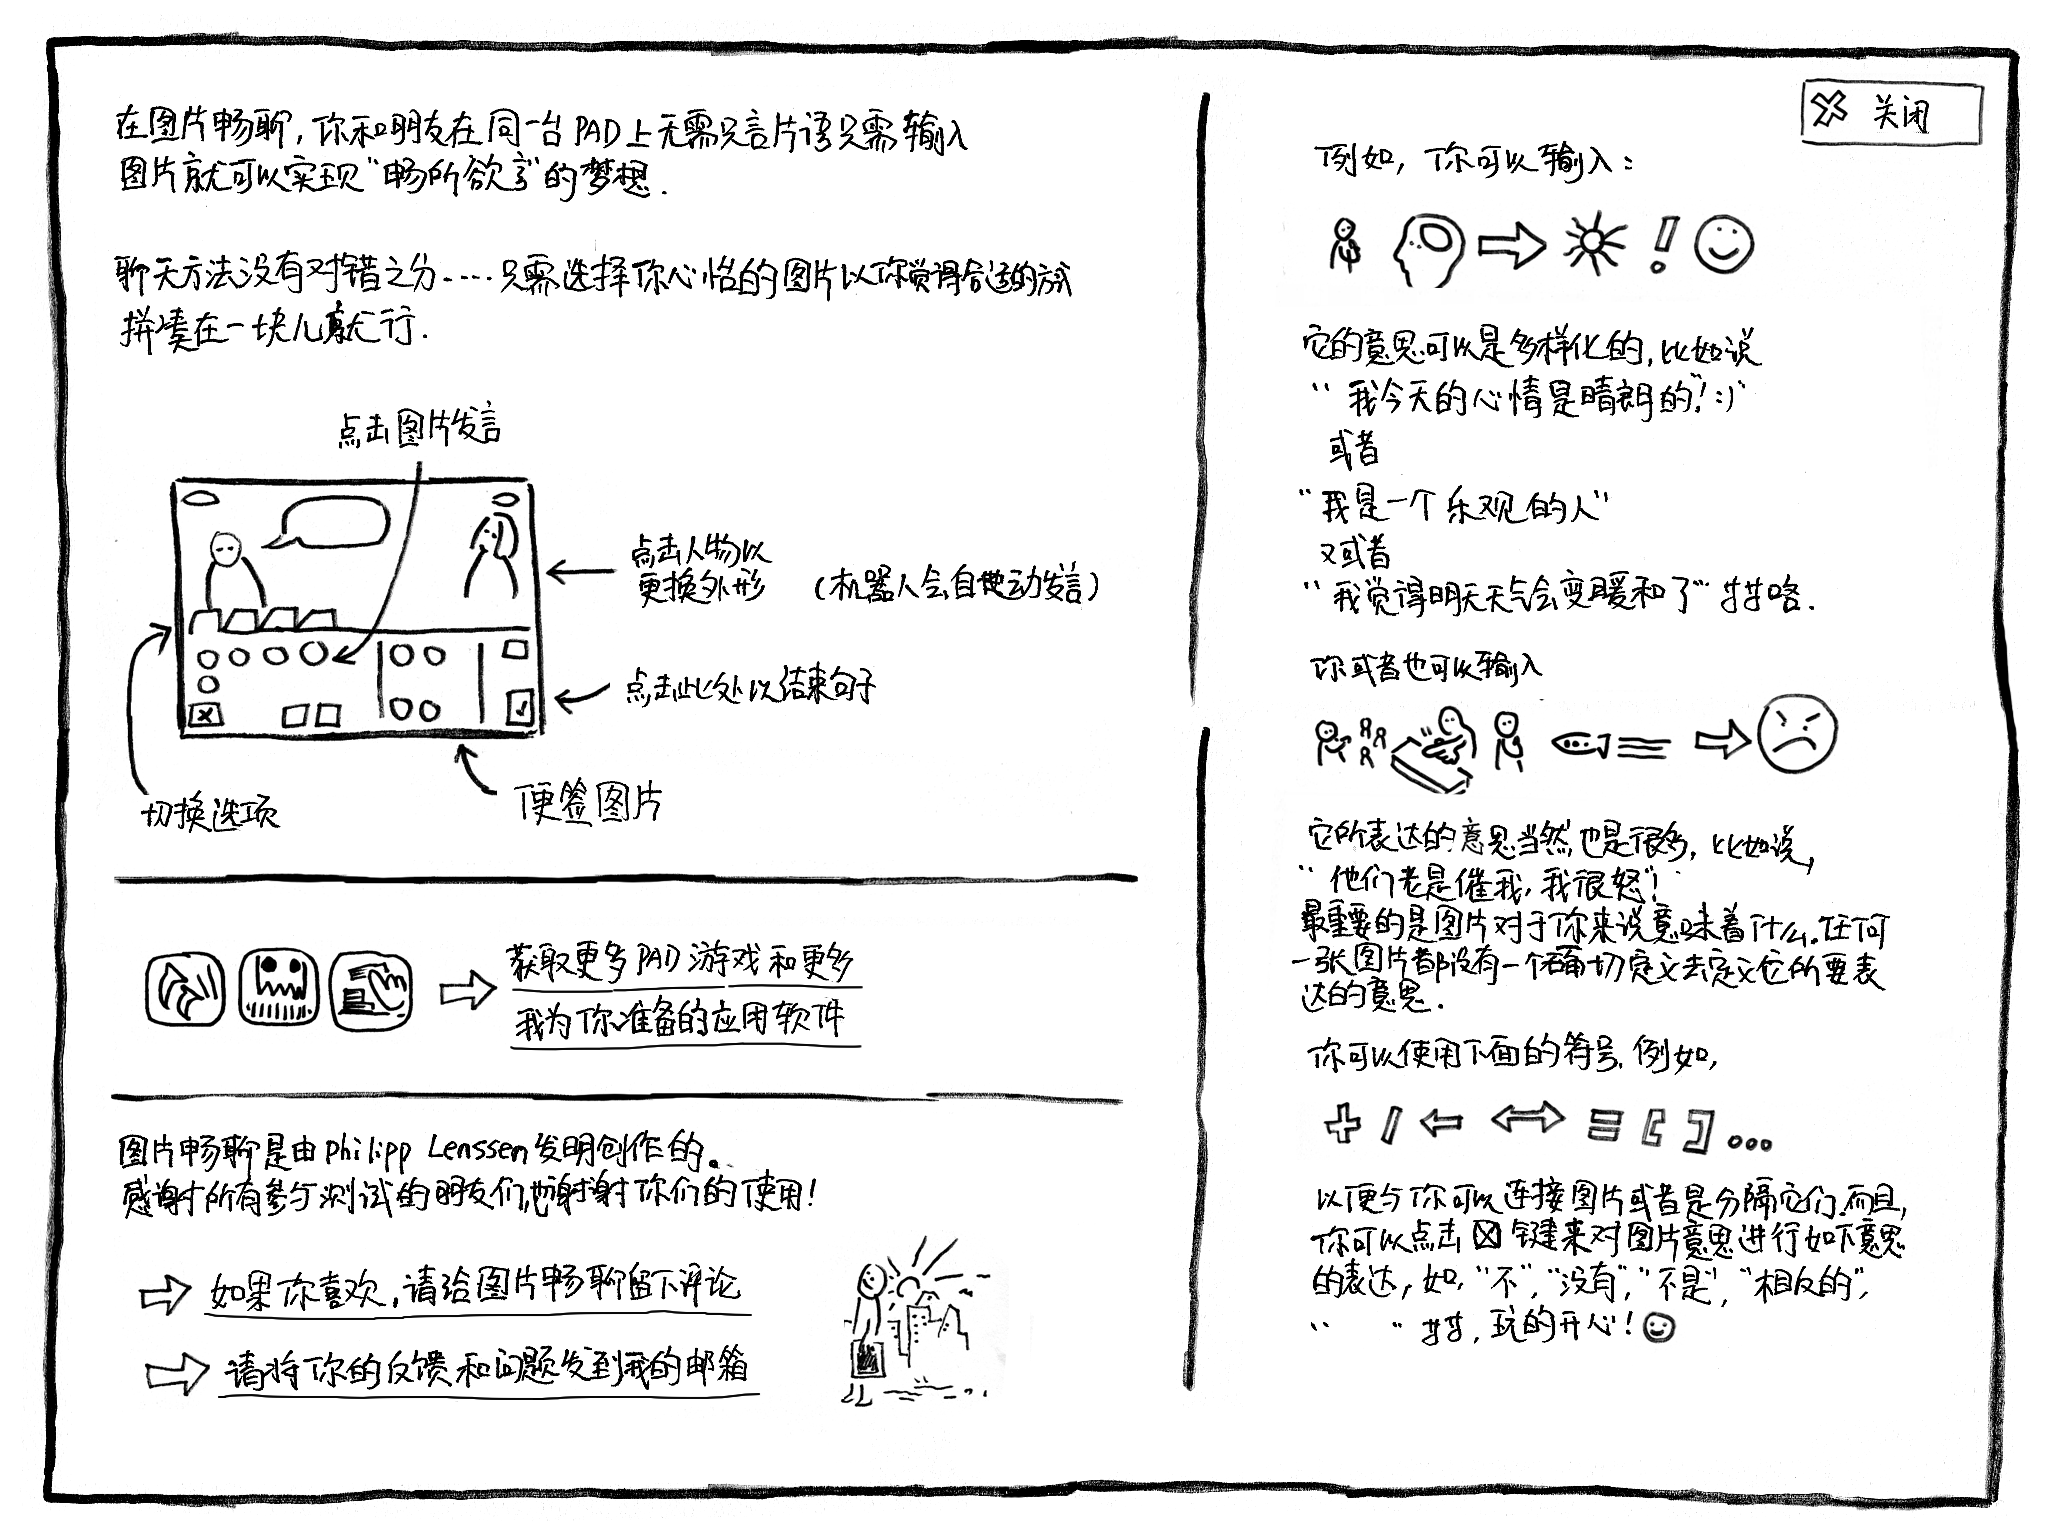 在图片畅聊，你和朋友在同一台PAD上无需只言片语只需输入
图片就可以实现“畅所欲言”的梦想.
聊天方法没有对错之分.....只需选择你心怡的图片以你觉得合适的方式
拼凑在一块儿就行.
点击图片发言
点击人物以
更换外形 (机器人会自动发言)
点击此处以结束句子
切换选项
便签图片
获取更多PAD游戏和更多
我为你准备的应用软件
图片畅聊是由Philipp Lenssen发明创作的。
感谢所有参与测试的朋友们,也谢谢你们的使用!
如果你喜欢,请给图片畅聊留下评论
请将你的反馈和问题发到我的邮箱
关闭
例如，你可以输入:
它的意思可以是多样化的,比如说
“我今天的心情是晴朗的!:)”
或者
“我是一个乐观的人”
又或者
“我觉得明天天气会变暖和了”等等咯.
你或者也可以输入
它所表达的意思当然也是很多,比如说,
“他们老是催我,我很怒”!
最重要的是图片对于你来说意味着什么.任何
一张图片都没有一个确切定义去定义它所要表
达的意思.
你可以使用下面的符号.例如,
以便与你可以连接图片或者是分隔它们.而且,
你可以点击☒键来对图片意思进行如下意思
的表达,如,“不”,“没有”,“不是”,“相反的”,
“ ”等等,玩的开心!